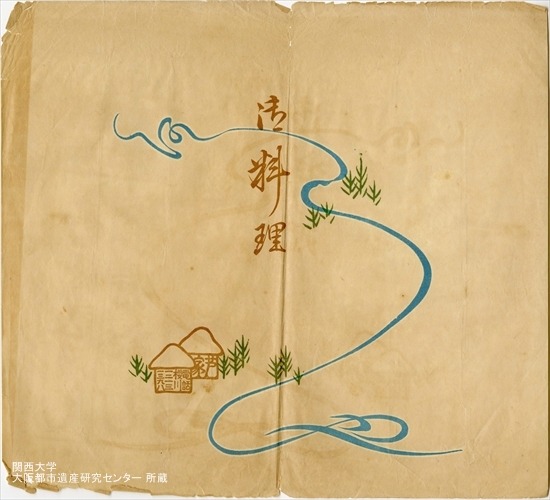 御料理
関西大学
大阪都市遺産研究センター 所蔵